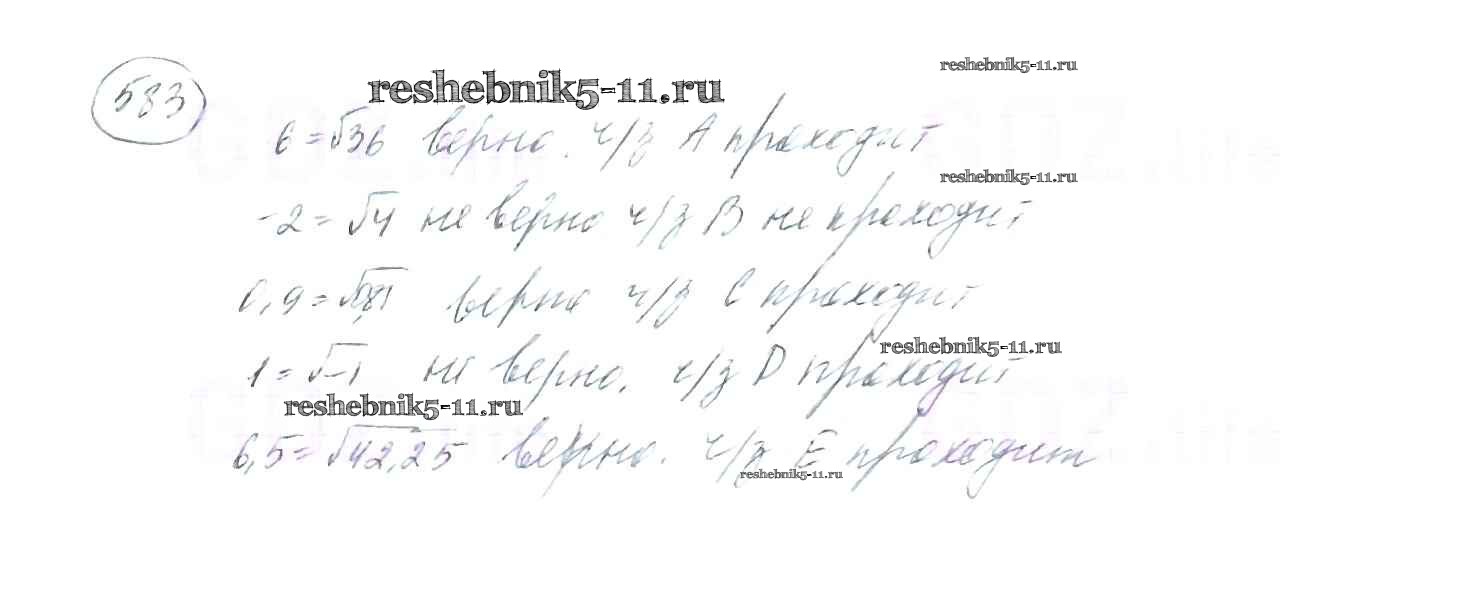 583
reshebnik5-11.ru
reshebnik5-11.ru
6 = √36 верно. ч/з А проходит
reshebnik5-11.ru
-2 = √4 не верно ч/з В не проходит
0,9 = √0,81 верно ч/з С проходит
reshebnik5-11.ru
1 = √-1 не верно. ч/з D проходит
reshebnik5-11.ru
6,5 = √42,25 верно. ч/з Е проходит
reshebnik5-11.ru